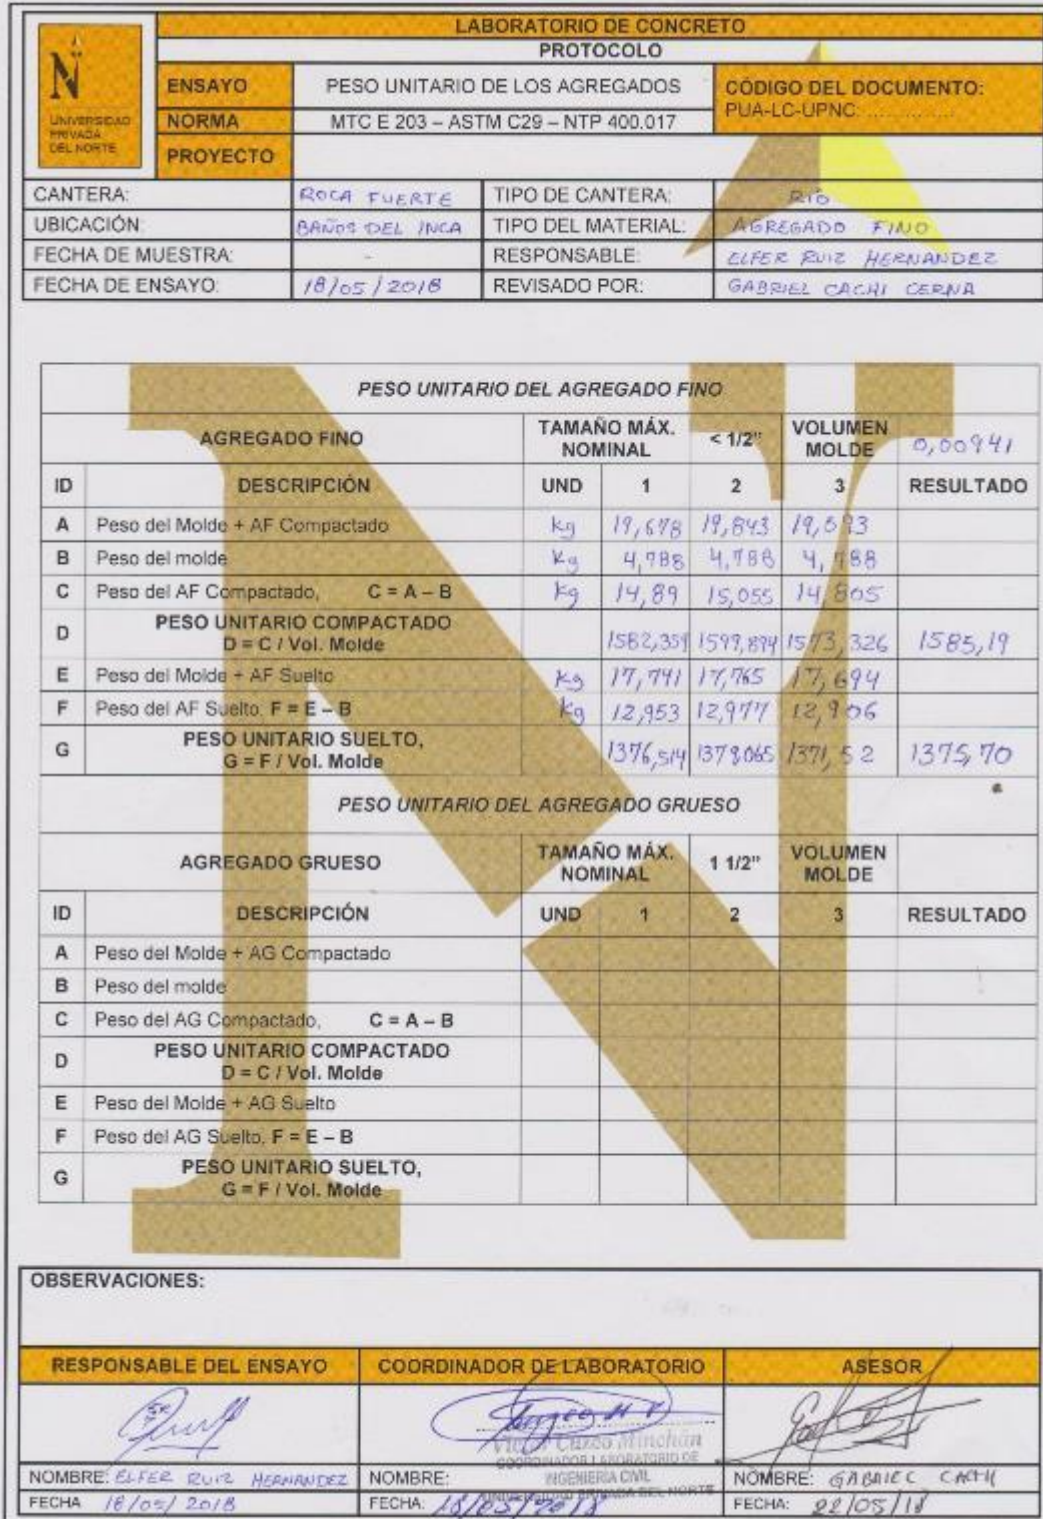 LABORATORIO DE CONCRETO
PROTOCOLO
N
UNIVERSIDAD
PRIVADA
DEL NORTE
ENSAYO PESO UNITARIO DE LOS AGREGADOS
CÓDIGO DEL DOCUMENTO:
PUA-LC-UPNC: ...............
NORMA MTC E 203 – ASTM C29 – NTP 400.017
PROYECTO
CANTERA: ROCA FUERTE TIPO DE CANTERA: RIO
UBICACIÓN: BAÑOS DEL INCA TIPO DEL MATERIAL: AGREGADO FINO
FECHA DE MUESTRA: - RESPONSABLE: ELFER RUIZ HERNANDEZ
FECHA DE ENSAYO: 18/05/2018 REVISADO POR: GABRIEL CACHI CERNA
PESO UNITARIO DEL AGREGADO FINO
AGREGADO FINO TAMAÑO MÁX. NOMINAL < 1/2" VOLUMEN MOLDE 0,00941
ID DESCRIPCIÓN UND 1 2 3 RESULTADO
A Peso del Molde + AF Compactado kg 19,678 19,843 19,593
B Peso del molde kg 4,788 4,788 4,788
C Peso del AF Compactado, C = A – B kg 14,89 15,055 14,805
D PESO UNITARIO COMPACTADO
D = C / Vol. Molde 1582,359 1599,894 1573,326 1585,19
E Peso del Molde + AF Suelto kg 17,741 17,765 17,694
F Peso del AF Suelto, F = E – B kg 12,953 12,977 12,906
G PESO UNITARIO SUELTO,
G = F / Vol. Molde 1376,514 1379,065 1371,52 1375,70
PESO UNITARIO DEL AGREGADO GRUESO
AGREGADO GRUESO TAMAÑO MÁX. NOMINAL 1 1/2" VOLUMEN MOLDE
ID DESCRIPCIÓN UND 1 2 3 RESULTADO
A Peso del Molde + AG Compactado
B Peso del molde
C Peso del AG Compactado, C = A – B
D PESO UNITARIO COMPACTADO
D = C / Vol. Molde
E Peso del Molde + AG Suelto
F Peso del AG Suelto, F = E – B
G PESO UNITARIO SUELTO,
G = F / Vol. Molde
OBSERVACIONES:
RESPONSABLE DEL ENSAYO COORDINADOR DE LABORATORIO ASESOR
Victor Cuzco Minchán
COORDINADOR LABORATORIO DE
INGENIERÍA CIVIL
UNIVERSIDAD PRIVADA DEL NORTE
NOMBRE: ELFER RUIZ HERNANDEZ NOMBRE: NOMBRE: GABRIEL CACHI
FECHA 18/05/2018 FECHA: 18/05/2018 FECHA: 22/05/18